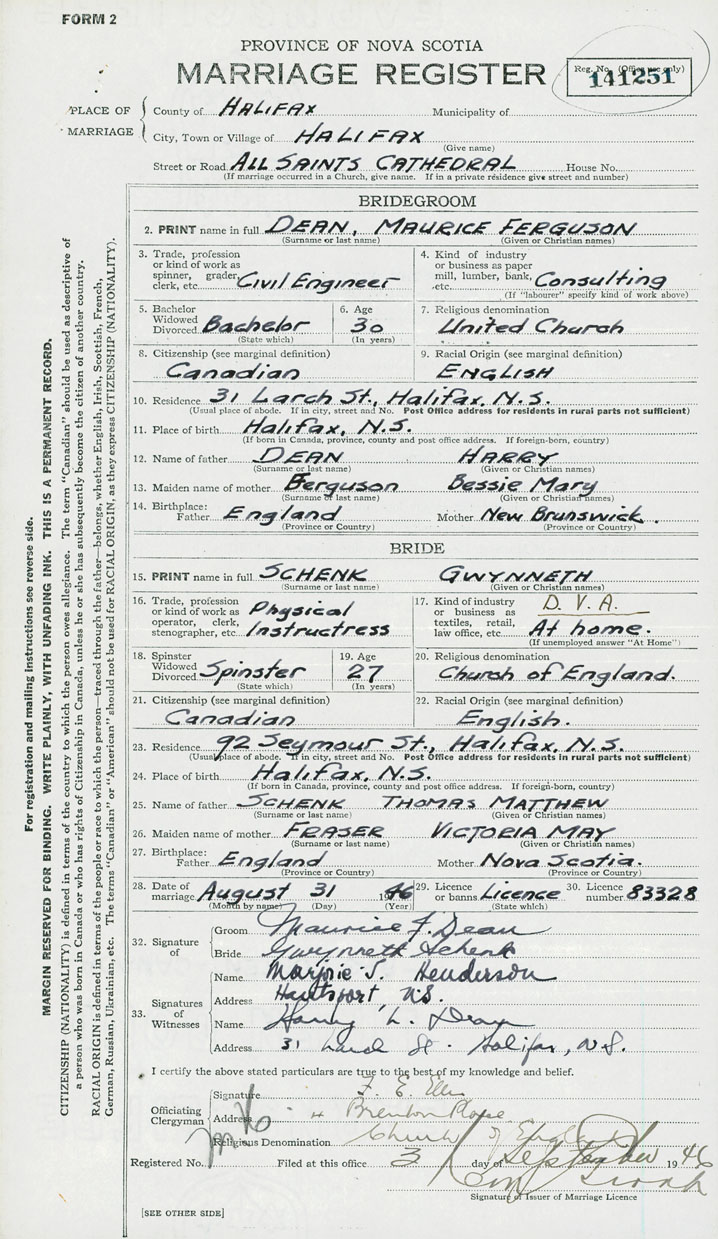 FORM 2
PROVINCE OF NOVA SCOTIA
MARRIAGE REGISTER
Reg. No. (Office use only)
141251
PLACE OF MARRIAGE
County of HALIFAX Municipality of
City, Town or Village of HALIFAX
(Give name)
Street or Road ALL SAINTS CATHEDRAL House No.
(If marriage occurred in a Church, give name. If in a private residence give street and number)
BRIDEGROOM
2. PRINT name in full DEAN, MAURICE FERGUSON
(Surname or last name) (Given or Christian names)
3. Trade, profession or kind of work as spinner, grader, clerk, etc. Civil Engineer
4. Kind of industry or business as paper mill, lumber, bank, etc. Consulting
(If "labourer" specify kind of work above)
5. Bachelor Widowed Divorced Bachelor
(State which)
6. Age 30
(In years)
7. Religious denomination
United Church
8. Citizenship (see marginal definition)
Canadian
9. Racial Origin (see marginal definition)
ENGLISH
10. Residence 31 Larch St., Halifax, N.S.
(Usual place of abode. If in city, street and No. Post Office address for residents in rural parts not sufficient)
11. Place of birth Halifax, N.S.
(If born in Canada, province, county and post office address. If foreign-born, country)
12. Name of father DEAN HARRY
(Surname or last name) (Given or Christian names)
13. Maiden name of mother Ferguson Bessie Mary
(Surname or last name) (Given or Christian names)
14. Birthplace: Father England Mother New Brunswick.
(Province or Country) (Province or Country)
BRIDE
15. PRINT name in full SCHENK GWYNNETH
(Surname or last name) (Given or Christian names)
16. Trade, profession or kind of work as operator, clerk, stenographer, etc. Physical Instructress
17. Kind of industry or business as textiles, retail, law office, etc. D.V.A. At home.
(If unemployed answer "At Home")
18. Spinster Widowed Divorced Spinster
(State which)
19. Age 27
(In years)
20. Religious denomination
Church of England.
21. Citizenship (see marginal definition)
Canadian
22. Racial Origin (see marginal definition)
English.
23. Residence 92 Seymour St., Halifax, N.S.
(Usual place of abode. If in city, street and No. Post Office address for residents in rural parts not sufficient)
24. Place of birth Halifax, N.S.
(If born in Canada, province, county and post office address. If foreign-born, country)
25. Name of father SCHENK THOMAS MATTHEW
(Surname or last name) (Given or Christian names)
26. Maiden name of mother FRASER VICTORIA MAY
(Surname or last name) (Given or Christian names)
27. Birthplace: Father England Mother Nova Scotia.
(Province or Country) (Province or Country)
28. Date of marriage August 31 1946
(Month by name) (Day) (Year)
29. Licence or banns Licence
(State which)
30. Licence number 83328
32. Signature of
Groom Maurice F. Dean
Bride Gwynneth Schenk
33. Signatures of Witnesses
Name Marjorie S. Henderson
Address Hantsport N.S.
Name Harry L. Dean
Address 31 Larch St. Halifax, N.S.
I certify the above stated particulars are true to the best of my knowledge and belief.
Officiating Clergyman
Signature F. E.
Address 4 Brenton Place
Religious Denomination Church of England
Registered No. Filed at this office 3 day of September 1946
Signature of Issuer of Marriage Licence
[SEE OTHER SIDE]
For registration and mailing instructions see reverse side.
MARGIN RESERVED FOR BINDING. WRITE PLAINLY, WITH UNFADING INK. THIS IS A PERMANENT RECORD.
CITIZENSHIP (NATIONALITY) is defined in terms of the country to which the person owes allegiance. The term "Canadian" should be used as descriptive of
a person who was born in Canada or who has rights of Citizenship in Canada, unless he or she has subsequently become the citizen of another country.
RACIAL ORIGIN is defined in terms of the people or race to which the person—traced through the father—belongs, whether English, Irish, Scottish, French,
German, Russian, Ukrainian, etc. The terms "Canadian" or "American" should not be used for RACIAL ORIGIN, as they express CITIZENSHIP (NATIONALITY).